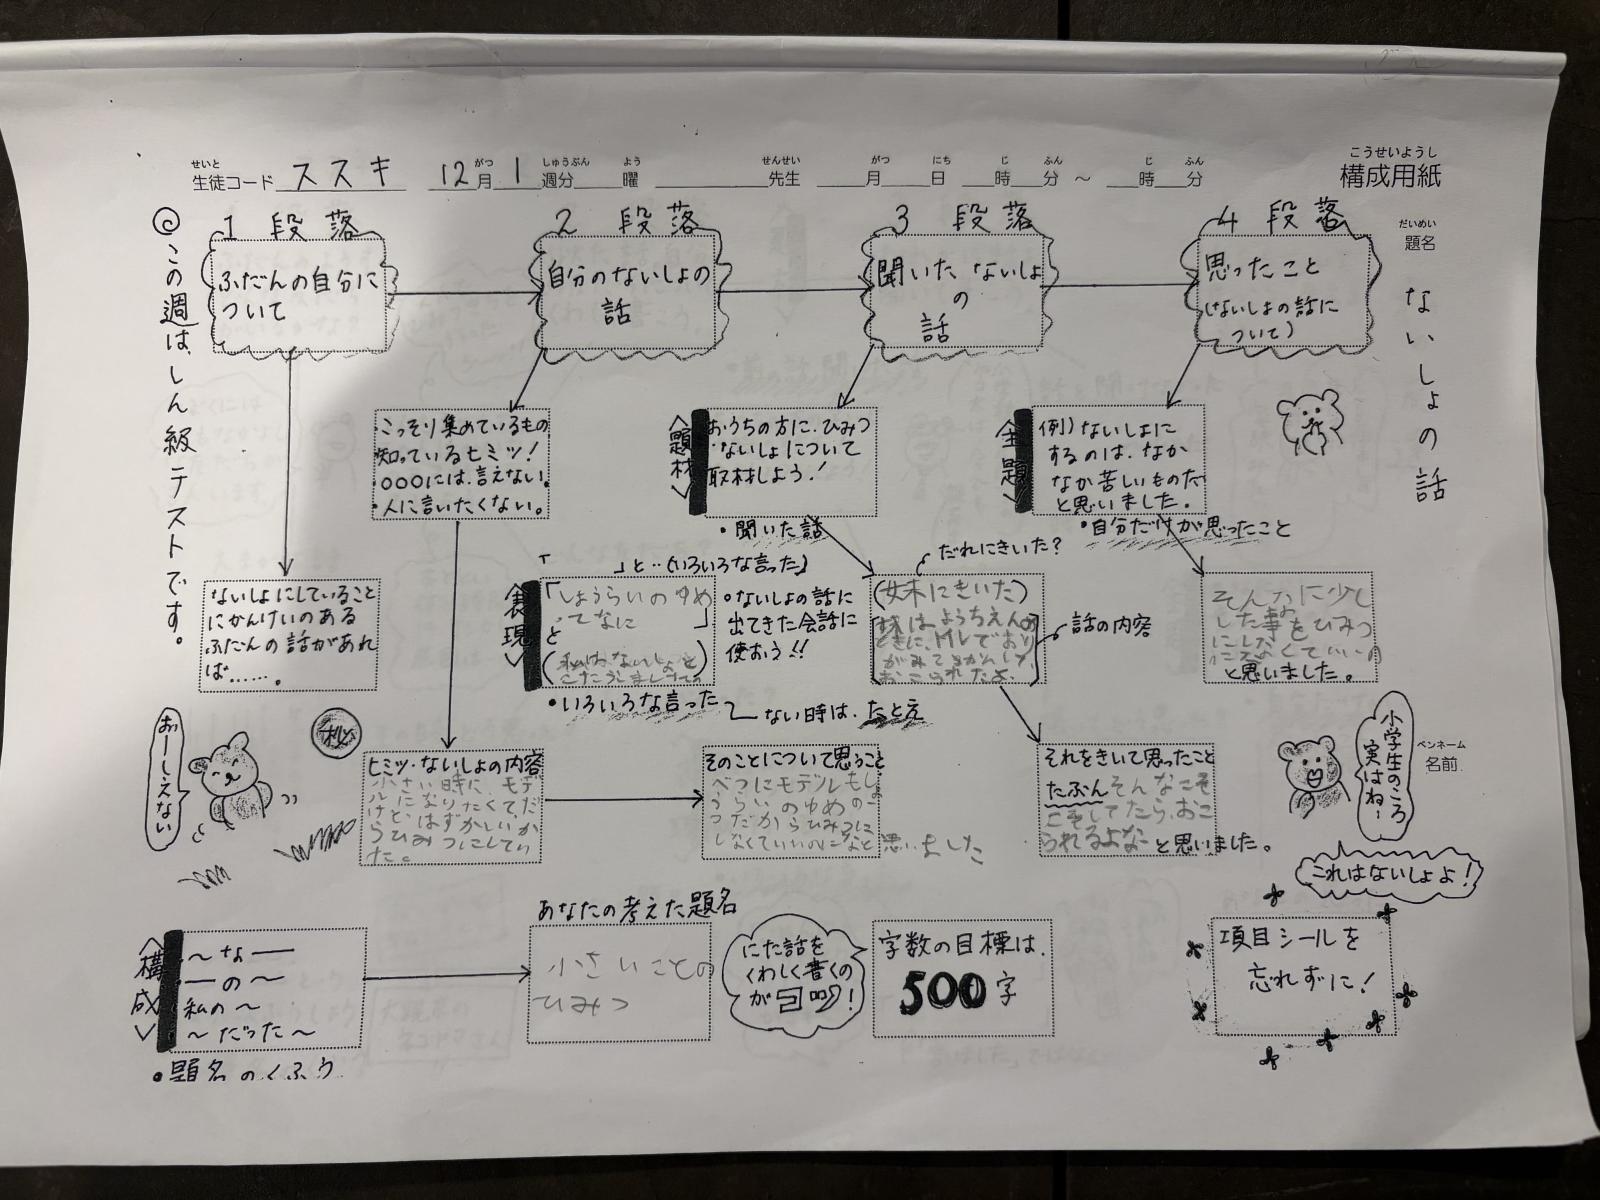 こうせいようし
構成用紙
せいと
生徒コード ススキ
がつ しゅうぶん よう
12月 1週分 曜
せんせい
先生
がつ にち じ ふん じ ふん
月 日 時 分 ～ 時 分
だいめい
題名
ないしょの話
◎この週は、しん級テストです。
1 段落
ふだんの自分に
ついて
2 段落
自分のないしょの
話
3 段落
聞いた ないしょ
の
話
4 段落
思ったこと
(ないしょの話に
ついて)
・こっそり集めているもの
知っているヒミツ!
・○○○には、言えない。
・人に言いたくない。
<題材>
おうちの方に、ひみつ
ないしょについて
取材しよう!
・聞いた話
<主題>
例)ないしょに
するのは、なか
なか苦しいものだ
と思いました。
・自分だけが思ったこと
ないしょにしていること
にかんけいのある
ふだんの話があれ
ば……。
「 」と‥(いろいろな言った)
<表現>
「しょうらいのゆめ
ってなに 」
と
(私は、ないしょっと
)
・いろいろな言った
ない時は、たとえ
・ないしょの話に
出てきた会話に
使おう!!
だれにきいた?
(妹にきいた)
妹はようちえんの
ときに、
おこられたよ。
話の内容
そんなに少し
した事をひみつ
にしな
くていいの
と思いました。
おーしえない
秘
ヒミツ・ないしょの内容
小さい時に、モデ
ルになりたくて、だ
けど、はずかしいか
らひみつにしてい
た。
そのことについて思うこと
べつにモデルもしょ
うらいのゆめの一
つだからひみつに
しなくていいのになと
思いました
それをきいて思ったこと
たぶんそんなこそ
こそしてたら、おこ
られるよな と思いました。
ペンネーム
名前
小学生のころ
実はね…
これはないしょよ!
<構成>
〜な—
—の〜
私の〜
〜だった〜
・題名のくふう
あなたの考えた題名
小さいことの
ひみつ
にた話を
くわしく書くの
が コツ!
字数の目標は、
500字
項目シールを
忘れずに!